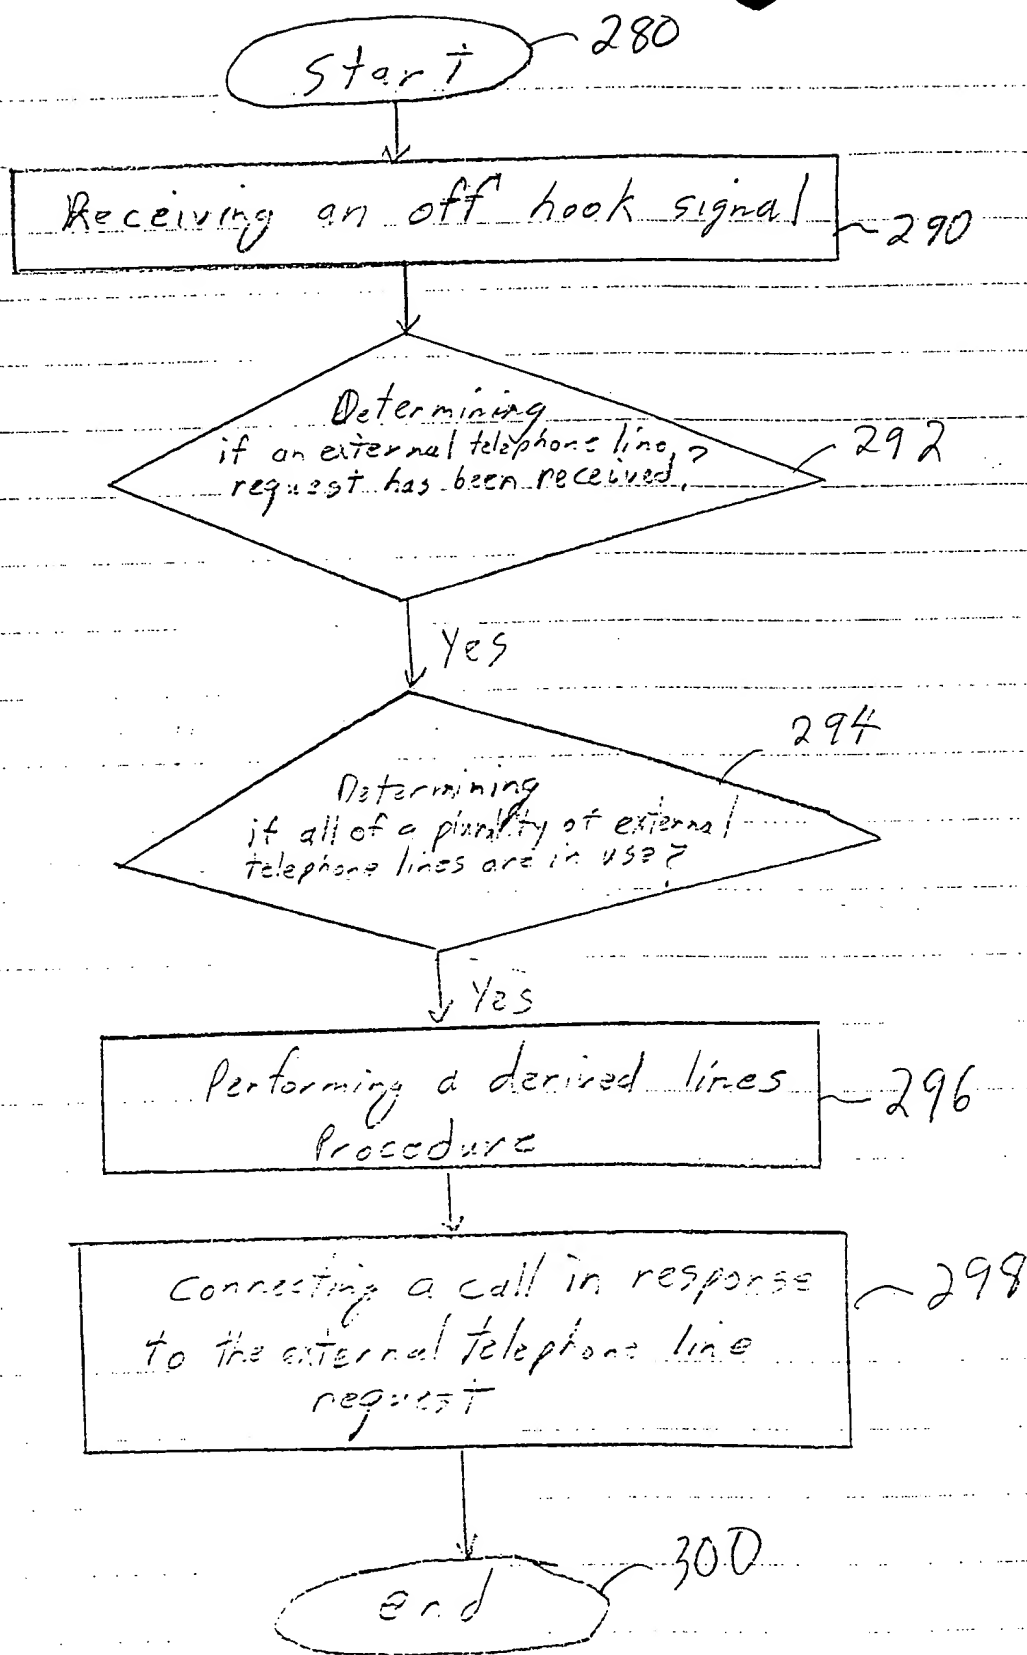 Start
280
Receiving an off hook signal
290
Determining
if an external telephone line
request has been received?
292
Yes
294
Determining
if all of a plurality of external
telephone lines are in use?
Yes
Performing a derived lines
Procedure
296
Connecting a call in response
to the external telephone line
request
298
end
300